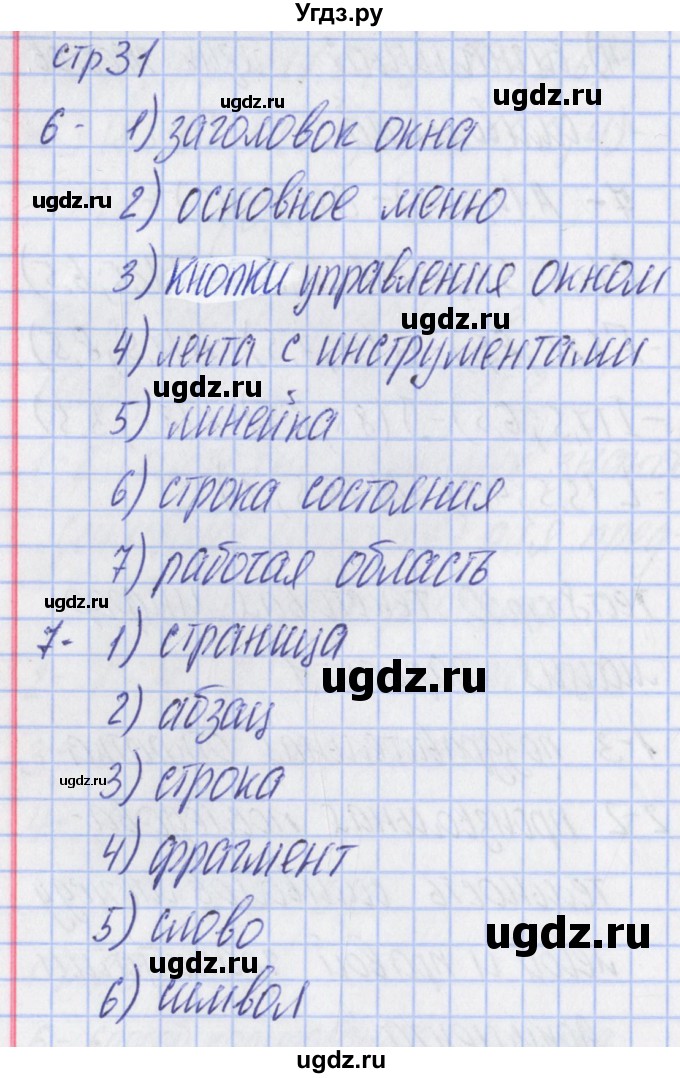 Угдз.ру
стр 31
ugdz.ru ugdz.ru
6 - 1) заголовок окна
ugdz.ru
2) основное меню
3) кнопки управления окном
ugdz.ru
4) лента с инструментами
ugdz.ru
5) линейка
ugdz.ru
6) строка состояния
7) рабочая область
ugdz.ru
7 - 1) страница
ugdz.ru
2) абзац
3) строка
ugdz.ru
4) фрагмент
5) слово
ugdz.ru
ugdz.ru
6) символ
ugdz.ru